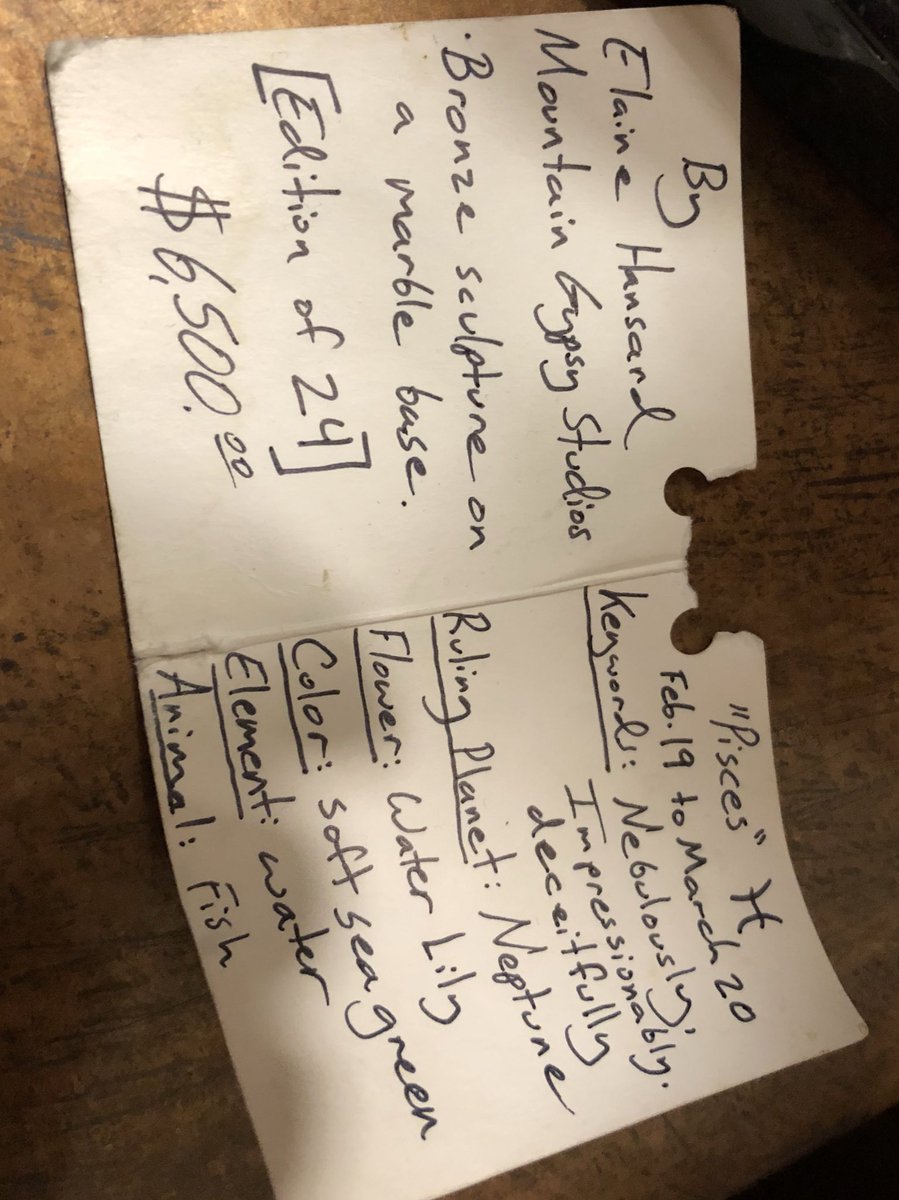 By
Elaine Hansard
Mountain Gypsy Studios
· Bronze sculpture on
a marble base.
[Edition of 24]
$6,500.00
"Pisces" ♓
Feb. 19 to March 20
Keyword: Nebulously,
Impressionably.
deceitfully
Ruling Planet: Neptune
Flower: Water Lily
Color: soft sea green
Element: water
Animal: Fish